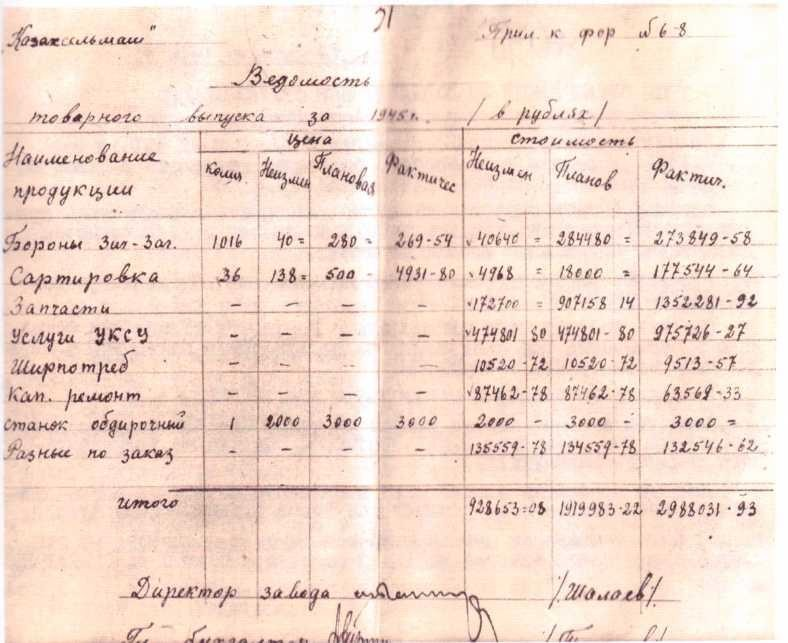 31
"Казахсельмаш" Прил. к фор №6-8
Ведомость
товарного выпуска за 1945 г. / в рублях /
Наименование продукции цена стоимость
колич Неизмен Плановая Фактичес Неизмен Планов Фактич.
Бороны Зиг-Заг. 1016 40= 280= 269-54 40640= 284480= 273849-58
Сартировка 36 138= 500- 4931-80 4968= 18000= 177544-64
Запчасти – – – – 172700= 907158 14 1352281-92
Услуги УКСУ – – – – 474801 80 474801-80 975726-27
Ширпотреб – – – – 10520-72 10520-72 9513-57
Кап. ремонт – – – – 87462-78 87462-78 63569-33
станок обдирочный 1 2000 3000 3000 2000- 3000- 3000=
Разные по заказ – – – – 135559-78 134559-78 132546-62
итого 928653=08 1919983-22 2988031-93
Директор завода /Шалаев/